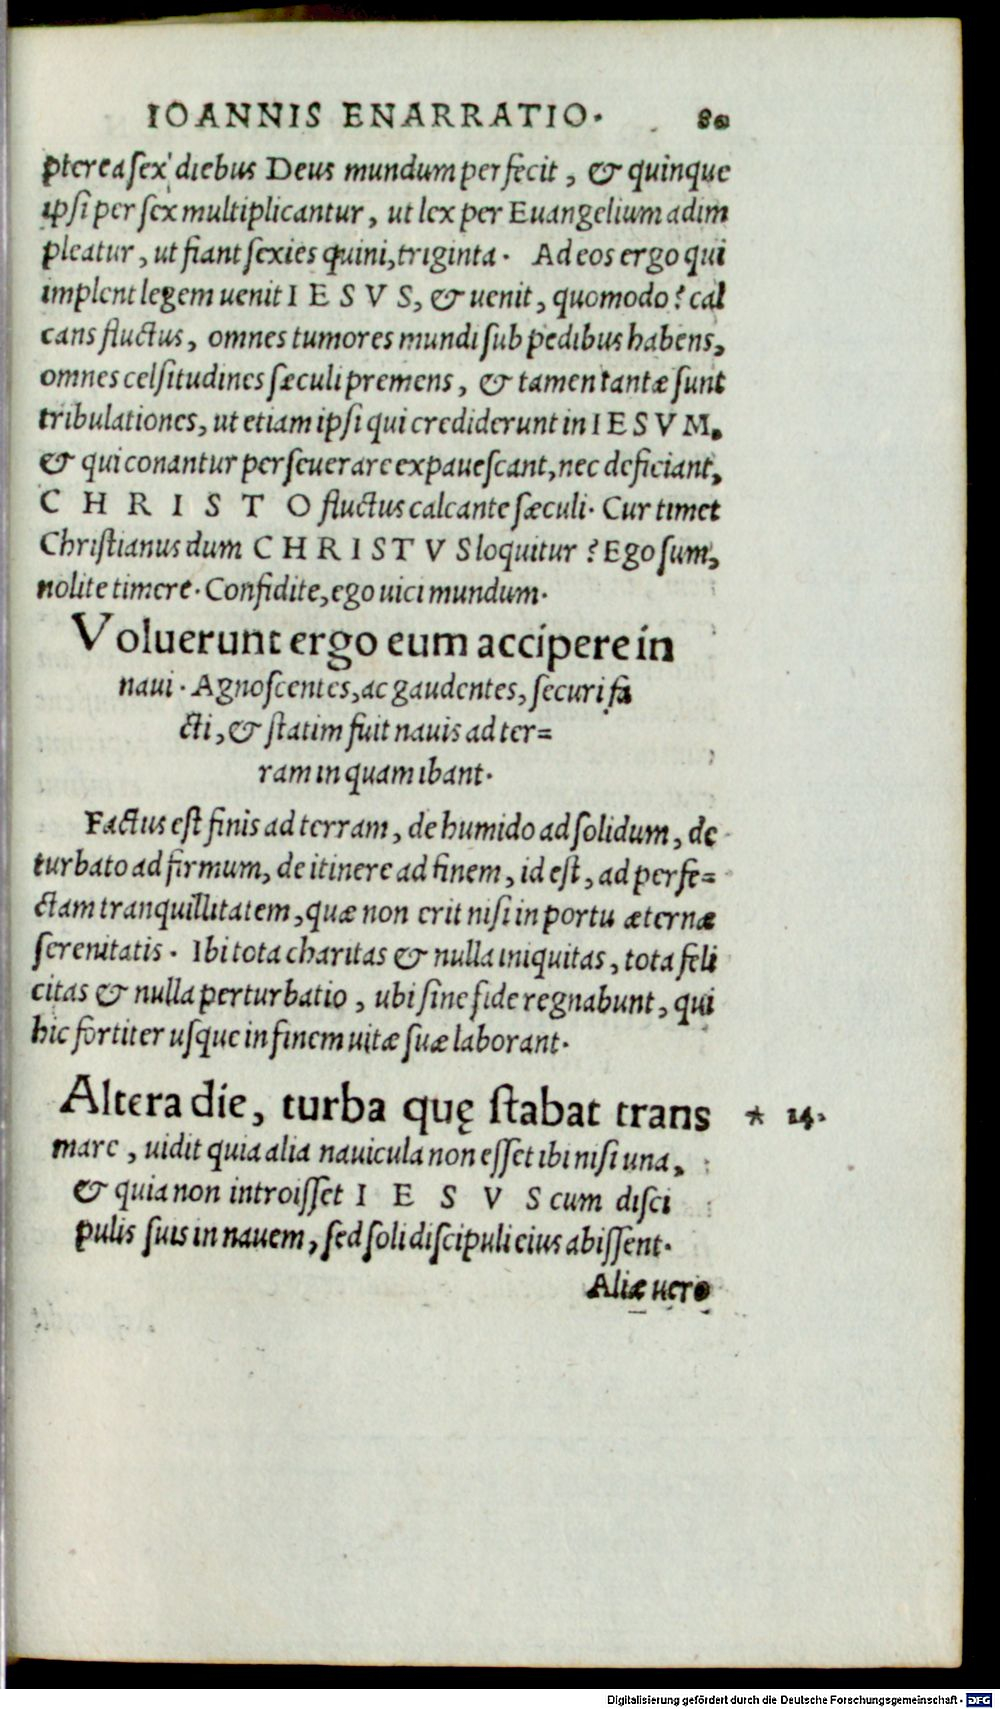 IOANNIS ENARRATIO. 80
pterea sex diebus Deus mundum perfecit, & quinque
ipsi per sex multiplicantur, ut lex per Euangelium adim
pleatur, ut fiant sexies quini, triginta. Ad eos ergo qui
implent legem uenit IESVS, & uenit, quomodo? cal
cans fluctus, omnes tumores mundi sub pedibus habens,
omnes celsitudines sæculi premens, & tamen tantæ sunt
tribulationes, ut etiam ipsi qui crediderunt in IESVM,
& qui conantur perseuerare expauescant, nec deficiant,
CHRISTO fluctus calcante sæculi. Cur timet
Christianus dum CHRISTVS loquitur? Ego sum,
nolite timere. Confidite, ego uici mundum.
Voluerunt ergo eum accipere in
naui. Agnoscentes, ac gaudentes, securi fa
cti, & statim fuit nauis ad ter=
ram in quam ibant.
Factus est finis ad terram, de humido ad solidum, de
turbato ad firmum, de itinere ad finem, id est, ad perfe=
ctam tranquillitatem, quæ non erit nisi in portu æternæ
serenitatis. Ibi tota charitas & nulla iniquitas, tota feli
citas & nulla perturbatio, ubi sine fide regnabunt, qui
hic fortiter usque in finem uitæ suæ laborant.
Altera die, turba quę stabat trans * 24.
mare, uidit quia alia nauicula non esset ibi nisi una,
& quia non introisset IESVS cum disci
pulis suis in nauem, sed soli discipuli eius abissent.
Aliæ uero
Digitalisierung gefördert durch die Deutsche Forschungsgemeinschaft - DFG